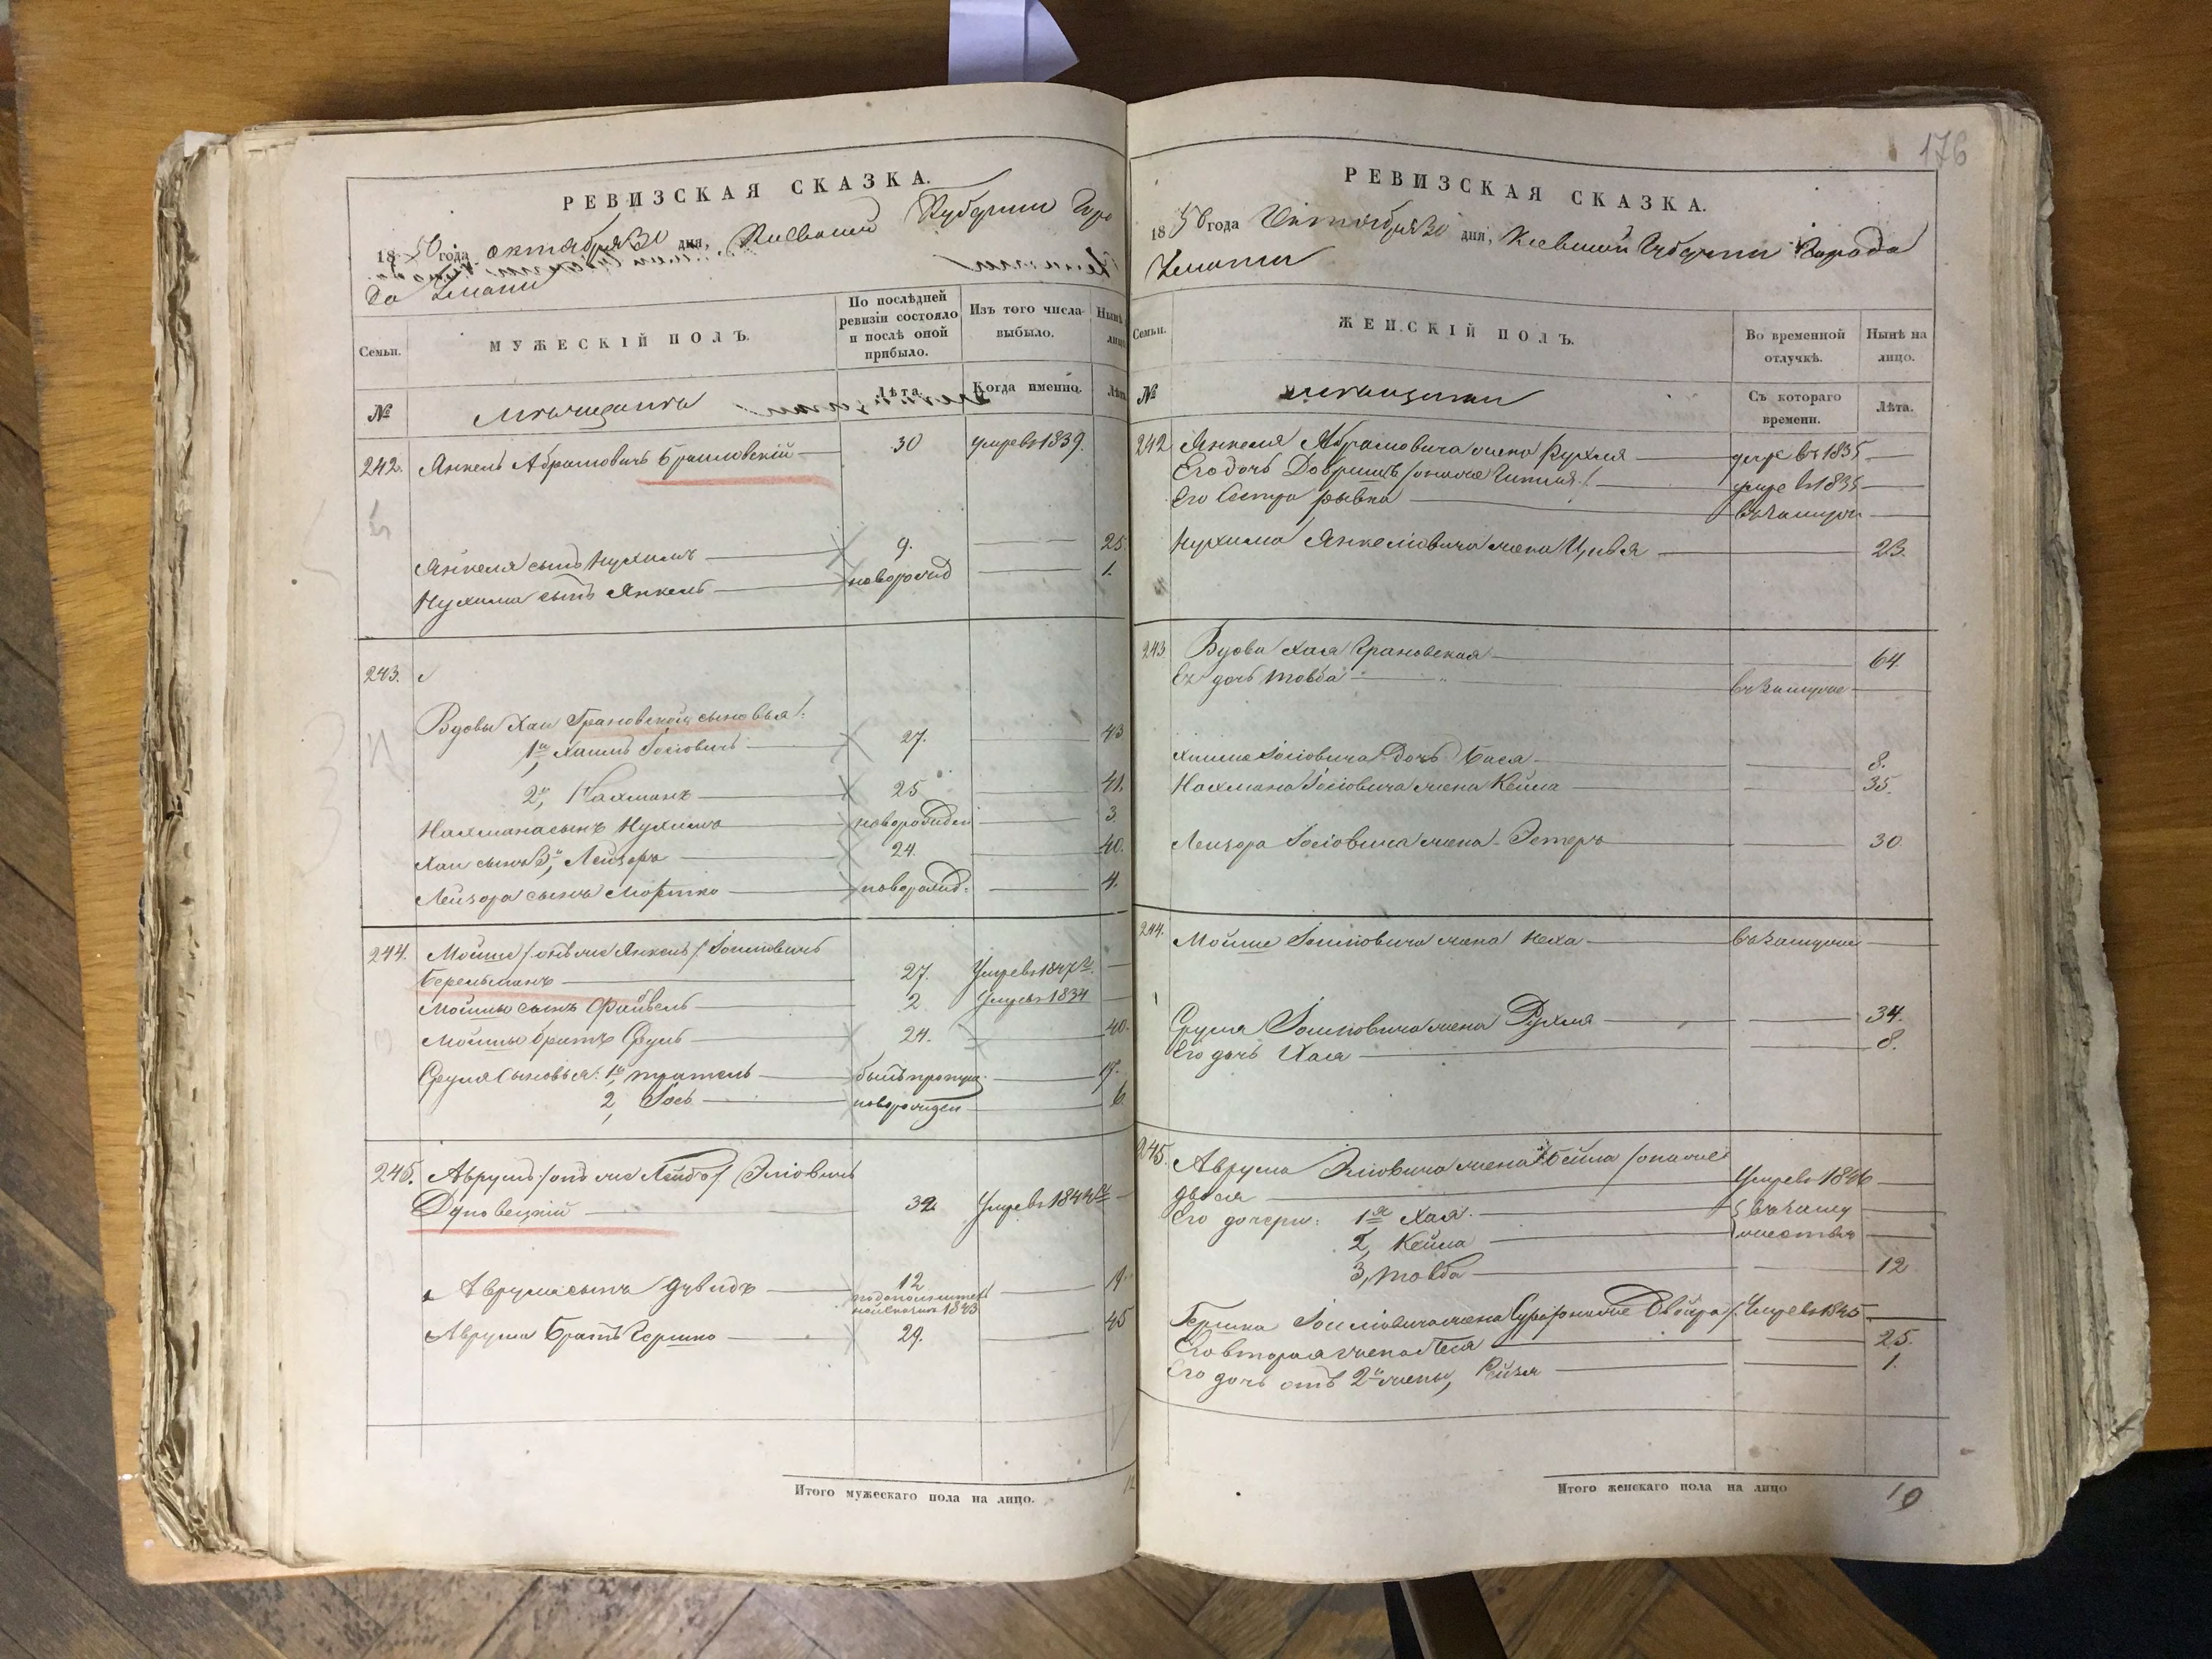 176
РЕВИЗСКАЯ СКАЗКА.
1850 года октября 30 дня, Киевской Губернии Горо
да Умани
Семьи.
МУЖЕСКІЙ ПОЛЪ.
По послѣдней ревизіи состояло и послѣ оной прибыло.
Изъ того числа выбыло.
Нынѣ лицо
№
Мѣщанинъ
Лѣта
Когда именно.
Лѣта
242. Янкель Абрамовичъ Брацловскій 30 умре в 1839.
Янкеля сынъ Нухимъ 9. 25
Нухима сынъ Янкель новорожд 1.
243.
Вдовы Хаи Грановской сыновья:
1й Хаимъ Іосіовичъ 27. 43
2й, Нахманъ 25 41.
Нахмана сынъ Нухимъ новорожден 3.
Хаи сынъ 3й, Лейзоръ 24. 40.
Лейзора сынъ Мортко новорожд: 4.
244. Мойше /онъ же Янкель/ Іошіовичъ
Берельманъ 27. Умре в 1847
Мойшы сынъ Файвель 2 Умре в 1834
Мойшы братъ Сруль 24. 40.
Сруля сыновья: 1й, былъ пропущ. 17.
2, Іось новорожден 6.
245. Аврумъ /онъ же Лейбо/ Эліовичъ
Дуповецкій 32 Умре в 1844
Аврума сынъ Дувидъ 12 1843 19.
Аврума братъ Гершко 29. 45
Итого мужескаго пола на лицо. 12
РЕВИЗСКАЯ СКАЗКА.
1850 года Октября 30 дня, Киевской Губернии Города
Умани
Семьи.
ЖЕНСКІЙ ПОЛЪ.
Во временной отлучкѣ.
Нынѣ на лицо.
№
мѣщанки
Съ котораго времени.
Лѣта.
242 Янкеля Абрамовича жена Рухля умре въ 1835
Его дочь Добришъ /она же Ципля/ умре в 1835
Его сестра Рывка въ замуж.
Нухима Янкелiовича жена Цивья 23.
243 Вдова Хая Грановская 64
Ея дочь Товба въ замуже
Хаима Іосіовича дочь Бася 8.
Нахмана Іосіовича жена Кейла 35.
Лейзора Іосіовича жена Эстеръ 30
244. Мойше Іошіовича жена Неха въ замуже
Сруля Іошіовича жена Рухля 34.
Его дочь Хая 8.
245. Аврума Эліовича жена Бейла /она же
Двося Умре в 1846
Его дочери: 1я Хая въ заму
2, Кейла жествѣ
3, Товба 12
Гершка жена Сура /она же Двойра/. Умре в 1845
Его вторая жена Бася 25.
Его дочь отъ 2й жены, Рейзя 1.
Итого женскаго пола на лицо 10